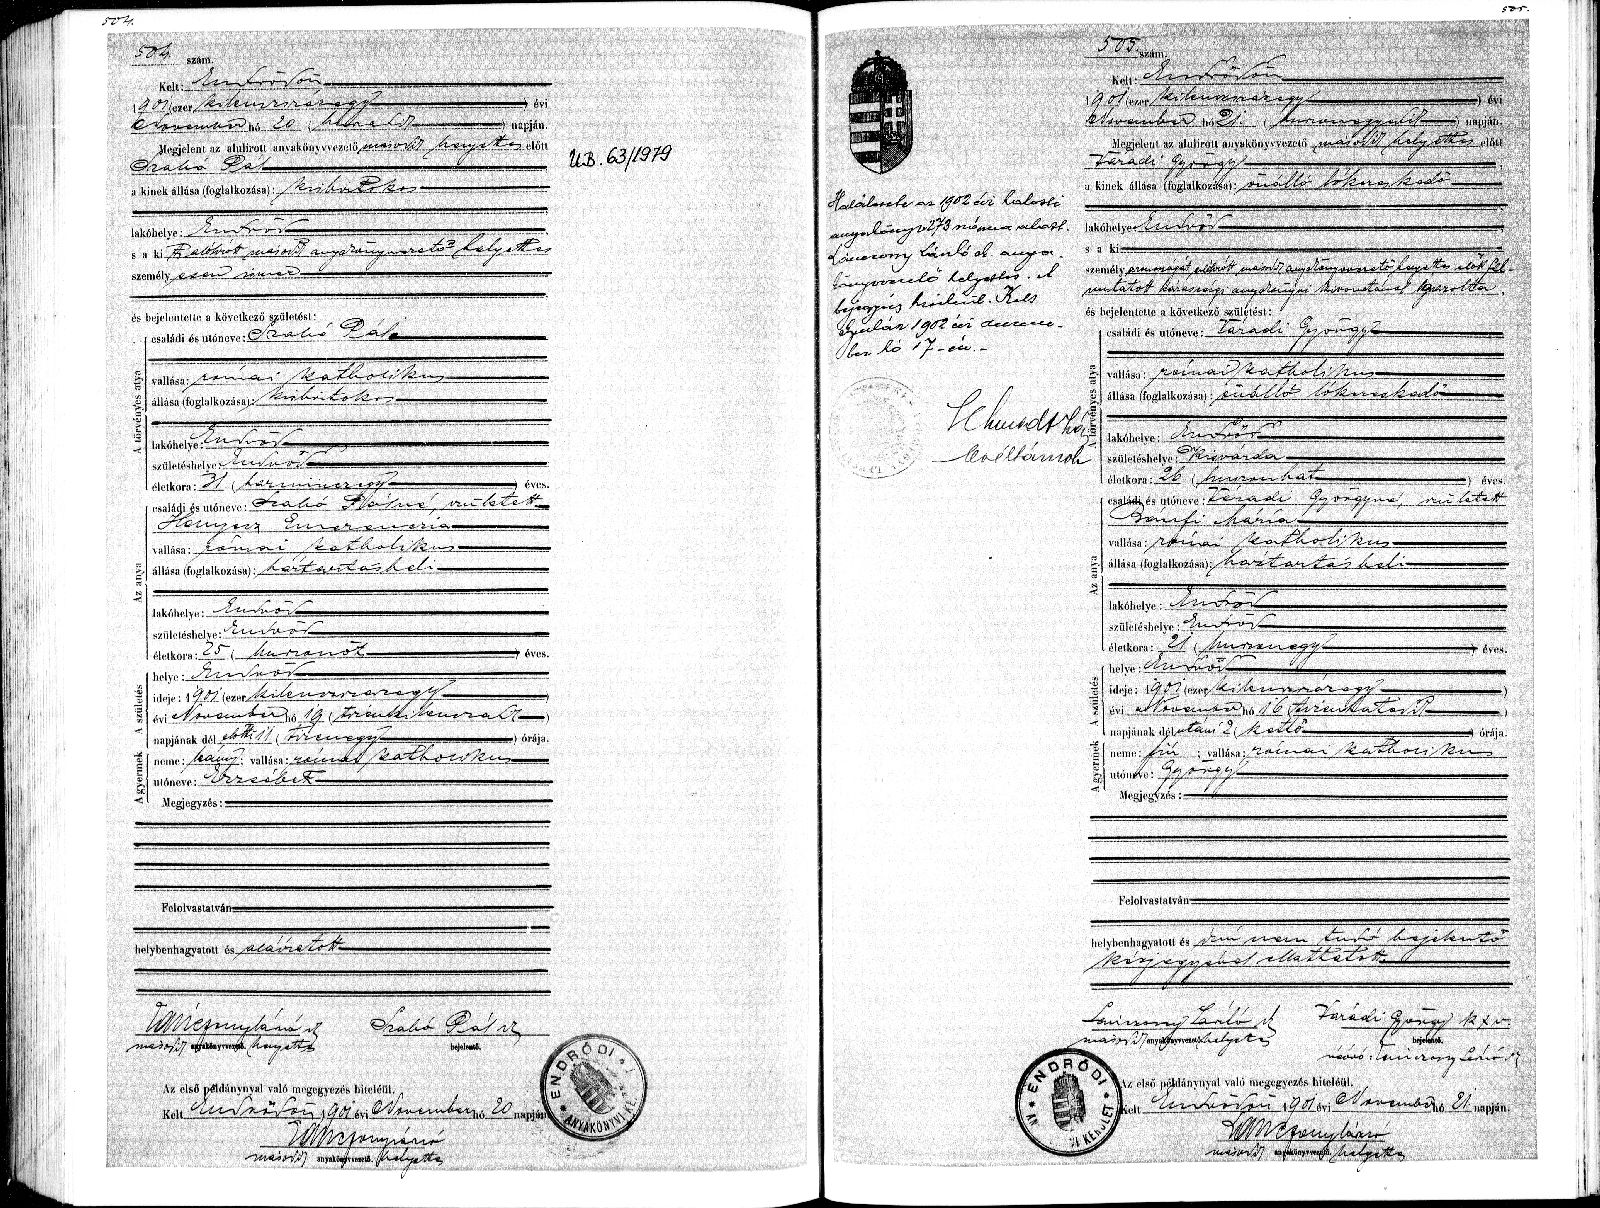 504.
504. szám.
Kelt: Endrődön
1901 (ezer kilenczszázegy) évi
November hó 20 (huszadik) napján.
Megjelent az alulirott anyakönyvvezető másodh helyettes előtt
Szabó Pál
a kinek állása (foglalkozása): kisbirtokos
lakóhelye: Endrőd
s a ki alulírott másodh anyakönyvvezető helyettes
személyesen ismer
és bejelentette a következő születést:
A törvényes atya
családi és utóneve: Szabó Pál
vallása: római katholikus
állása (foglalkozása): kisbirtokos
lakóhelye: Endrőd
születéshelye: Endrőd
életkora: 31 (harminczegy) éves.
Az anya
családi és utóneve: Szabó Pálné, született
Hanyecz Emerenczia
vallása: római katholikus
állása (foglalkozása): háztartásbeli
lakóhelye: Endrőd
születéshelye: Endrőd
életkora: 25 (huszonöt) éves.
A születés
helye: Endrőd
ideje: 1901 (ezer kilenczszázegy)
évi November hó 19 (tizenkilenczedik)
napjának dél előtti 11 (tizenegy) órája.
A gyermek
neme: leány; vallása: római katholikus
utóneve: Erzsébet
Megjegyzés:
Felolvastatván
helybenhagyatott és aláíratott
Vaniczony László s.k.
másodh anyakönyvvezető helyettes
Szabó Pál s.k.
bejelentő.
Az első példánynyal való megegyezés hiteléül.
Kelt Endrődön 1901 évi November hó 20 napján
másodh anyakönyvvezető. helyettes
ENDRŐDI
ANYAKÖNYVI KER.
U.B. 63/1979
505.
Halálesete az 1902 évi halotti
anyakönyv 273 száma alatt.
László s.k. anya-
könyvvezető helyettes.
bejegyzés közlésül. Kelt
Gyulán 1902 évi decem-
ber hó 17-én.
505. szám.
Kelt: Endrődön
1901 (ezer kilenczszázegy) évi
November hó 21. (huszonegyedik) napján.
Megjelent az alulirott anyakönyvvezető másodh helyettes előtt
Váradi György
a kinek állása (foglalkozása): önálló lókereskedő
lakóhelye: Endrőd
s a ki
személyazonosságát alulírott másodh anyakönyvvezető helyettes előtt fel-
mutatott házassági anyakönyvi kivonatával igazolta.
és bejelentette a következő születést:
A törvényes atya
családi és utóneve: Váradi György
vallása: római katholikus
állása (foglalkozása): önálló lókereskedő
lakóhelye: Endrőd
születéshelye: Kisvárda
életkora: 26 (huszonhat) éves.
Az anya
családi és utóneve: Váradi Györgyné, született
Banfi Mária
vallása: római katholikus
állása (foglalkozása): háztartásbeli
lakóhelye: Endrőd
születéshelye: Endrőd
életkora: 21 (huszonegy) éves.
A születés
helye: Endrőd
ideje: 1901 (ezer kilenczszázegy)
évi November hó 16 (tizenhatodik)
napjának dél utáni 2 (kettő) órája.
A gyermek
neme: fiú; vallása: római katholikus
utóneve: György
Megjegyzés:
Felolvastatván
helybenhagyatott és írni nem tudó bejelentő
kézjegyével elláttatott
László s.k.
másodh anyakönyvvezető helyettes
Váradi György
bejelentő.
ENDRŐDI
AV KERÜLET
Az első példánynyal való megegyezés hiteléül.
Kelt Endrődön 1901 évi November hó 21 napján.
másodh anyakönyvvezető. helyettes